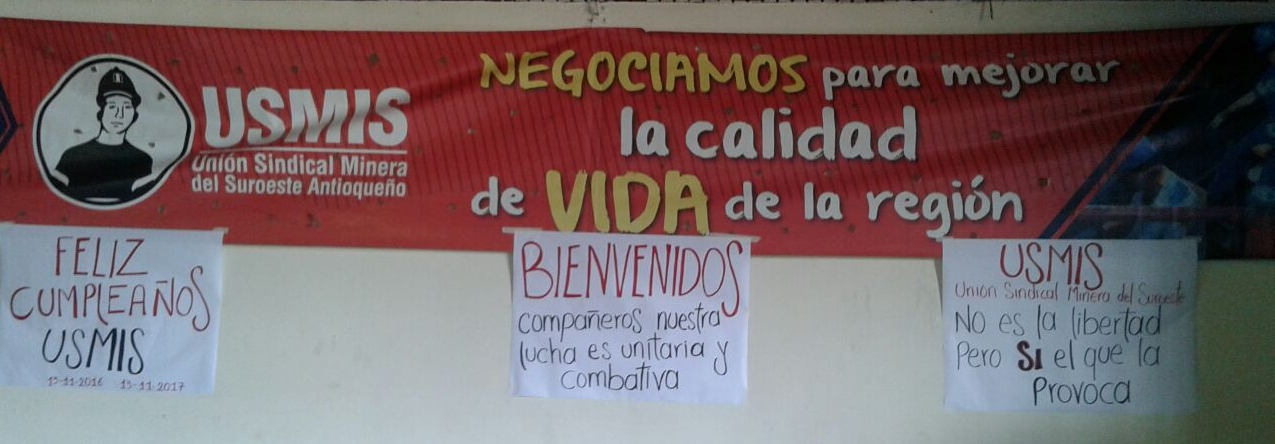 USMIS
Unión Sindical Minera
del Suroeste Antioqueño
NEGOCIAMOS para mejorar
la calidad
de VIDA de la región
FELIZ
CUMPLEAÑOS
USMIS
13-11-2016 13-11-2017
BIENVENIDOS
compañeros nuestra
lucha es unitaria y
combativa
USMIS
Unión Sindical Minera del Suroeste
NO es la libertad
Pero SI el que la
Provoca